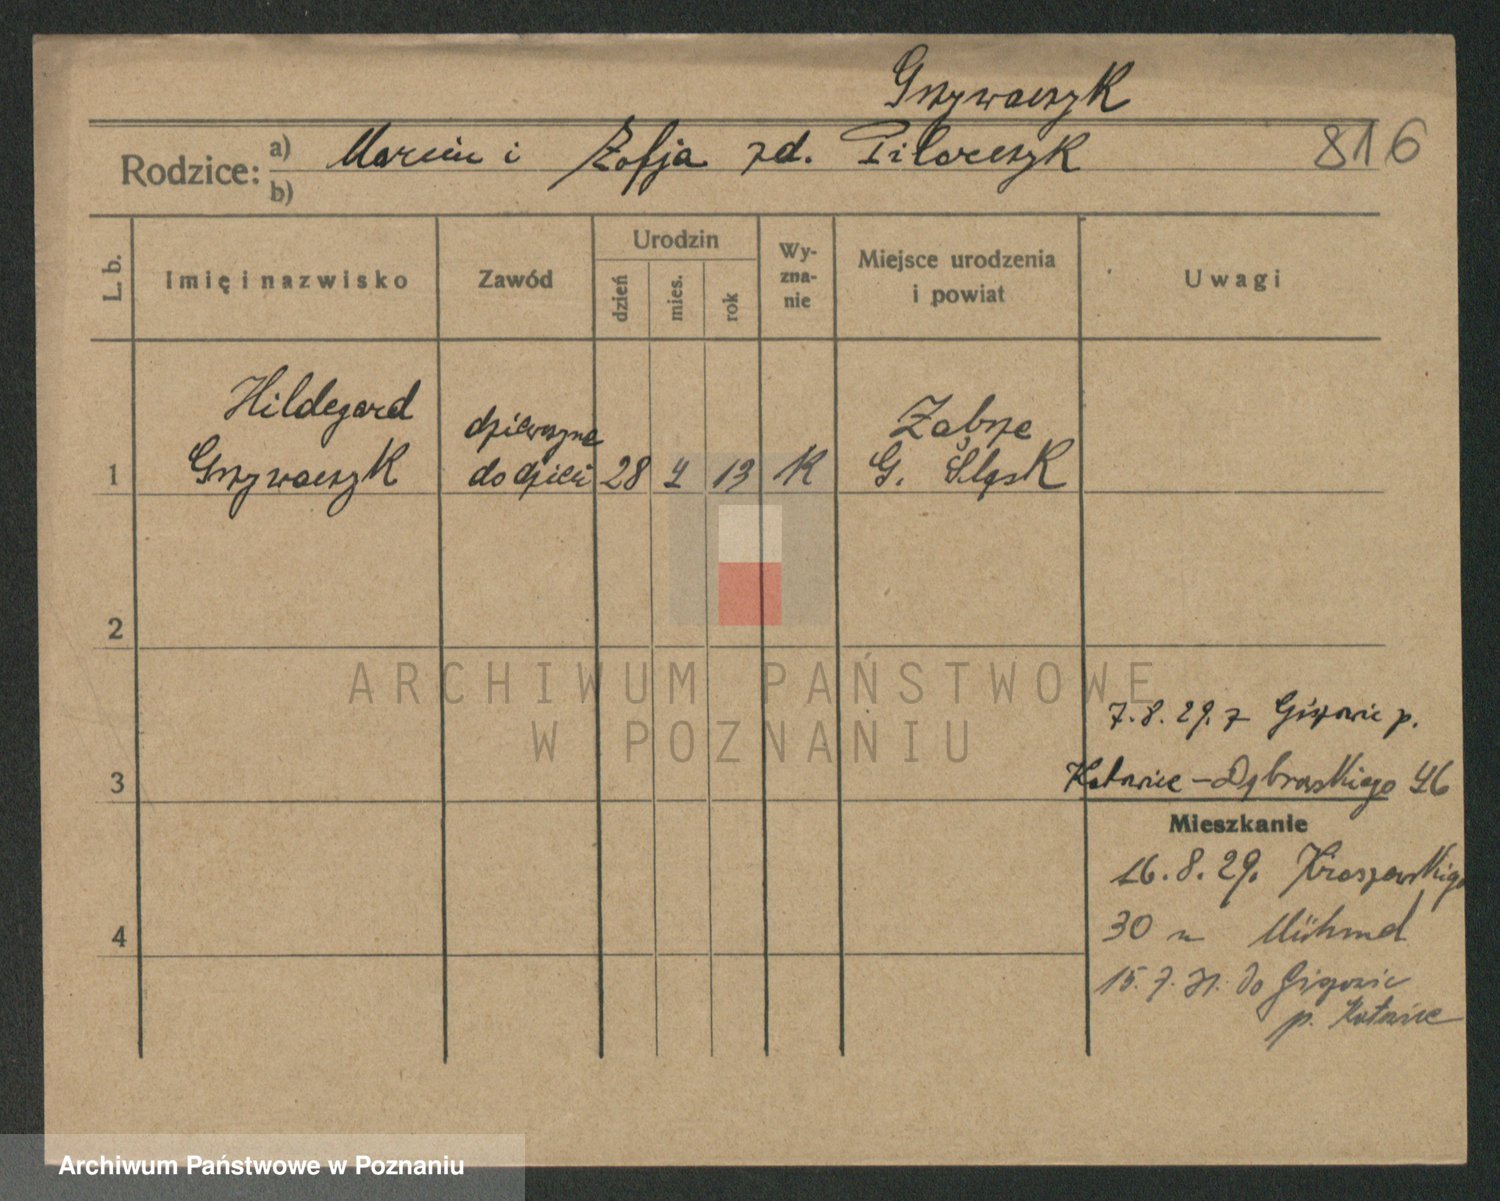 Grzywaczyk
816
Rodzice: a) Marcin i Zofja zd. Pilarczyk
b)
L. b.
Imię i nazwisko
Zawód
Urodzin
dzień
mies.
rok
Wy-
zna-
nie
Miejsce urodzenia
i powiat
Uwagi
Hildegard
Grzywaczyk
dziewczyna
do dzieci
28 4 13 K
Zabrze
G. Śląsk
1
2
3
4
7.8.29. z Giszowic p.
Katowice – Dąbrowskiego 46
Mieszkanie
16.8.29. Kraszewskiego
30 u
15.7.31. do
p. Katowice
ARCHIWUM PAŃSTWOWE
W POZNANIU
Archiwum Państwowe w Poznaniu